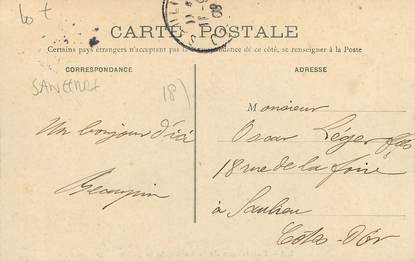 CARTE POSTALE
Certains pays étrangers n'acceptant pas la correspondance de ce côté, se renseigner à la Poste
CORRESPONDANCE
ADRESSE
SANCERRE
18)
Un bonjour d'ici
Monsieur
Oscar Léger fils
18 rue de la foire
à Saulieu
Côte-d'Or
08